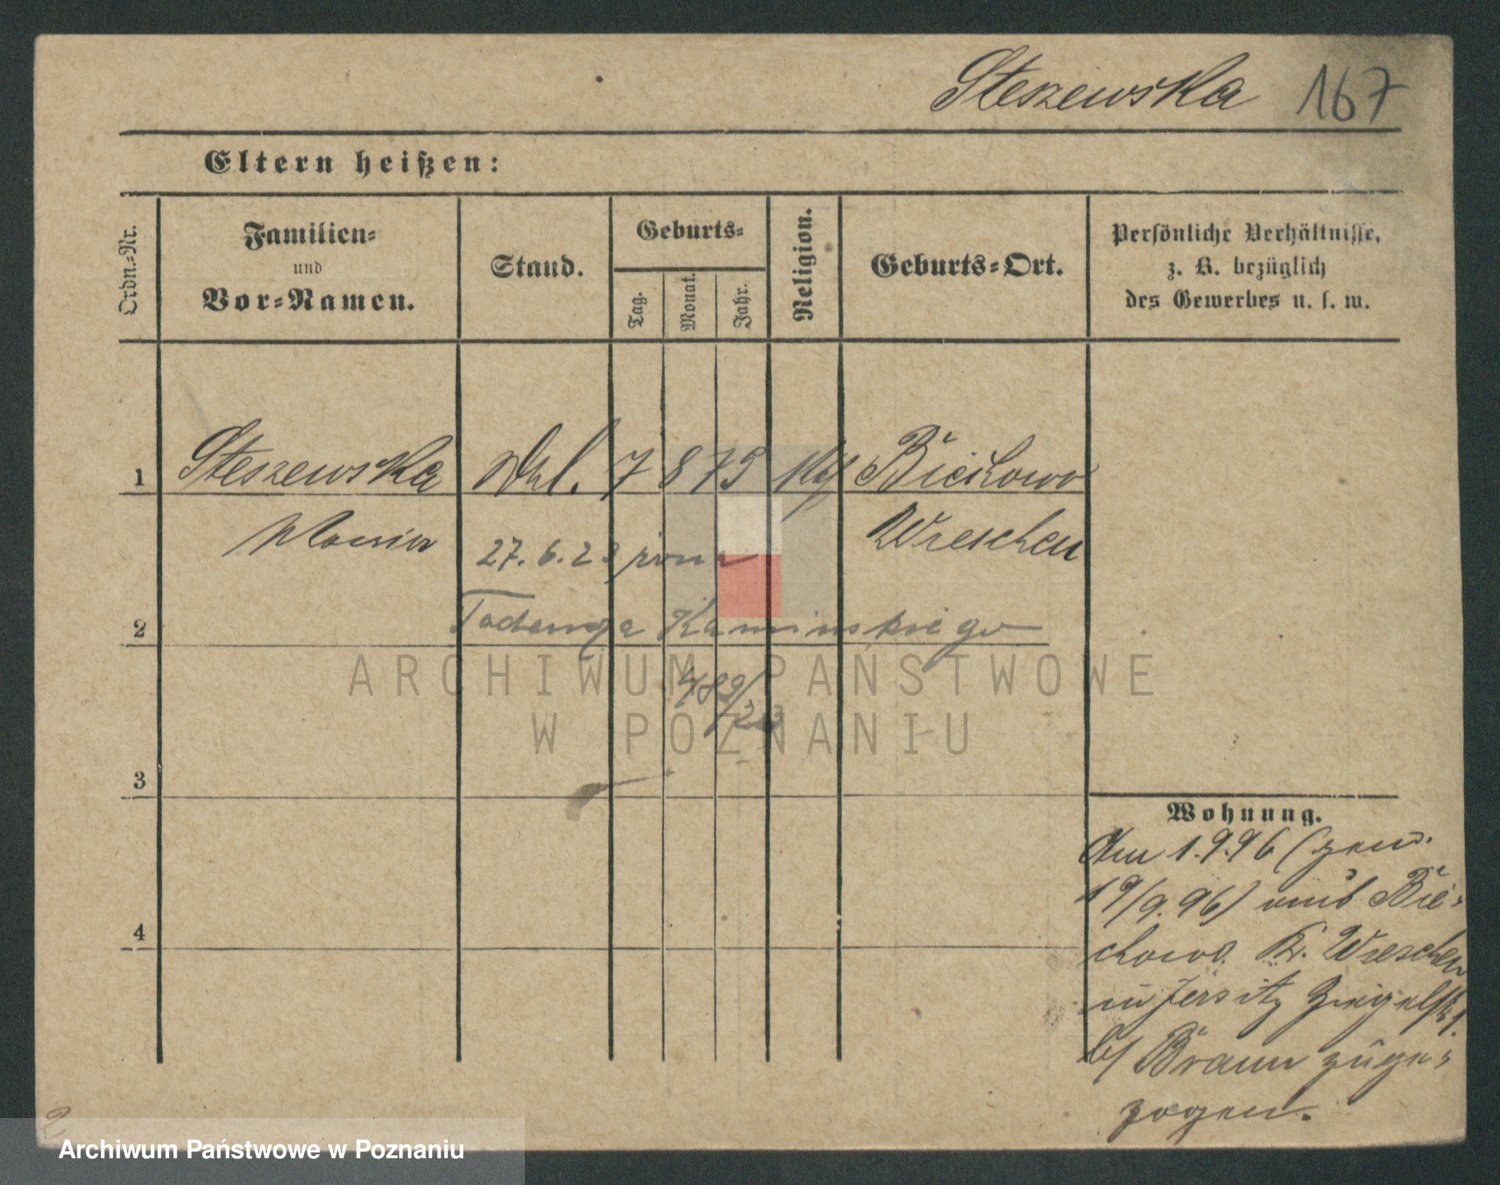 Steszewska 167
Eltern heißen:
Ordn.-Nr.
Familien-
und
Vor-Namen.
Stand.
Geburts-
Tag.
Monat.
Jahr.
Religion.
Geburts-Ort.
Persönliche Verhältnisse,
z. B. bezüglich
des Gewerbes u. s. w.
1 Steszewska 7 8 79 Biechowo
Maria Wreschen
27.6.23 żona
2 Tadeusza Kamińskiego
489/23
3
4
Wohnung.
Am 1.9.96 (gem.
19/9.96) aus Bie-
chowo Kr. Wreschen
in Jersitz Ziegelstr. 1
b/ Braun zuge-
zogen.
2
ARCHIWUM PAŃSTWOWE
W POZNANIU
Archiwum Państwowe w Poznaniu